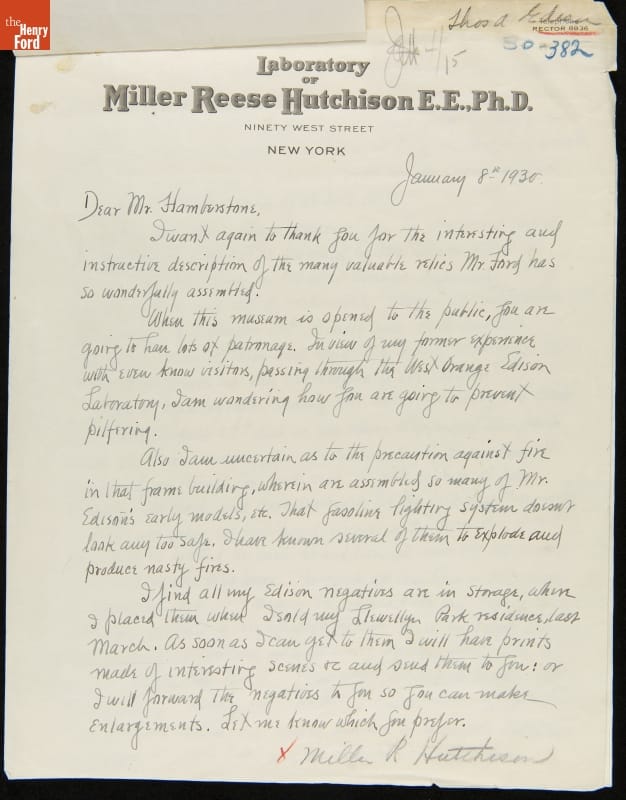 the
Henry
Ford
Thos A Edison
Telephone
RECTOR 8936
50-382
4/15
Laboratory
OF
Miller Reese Hutchison E.E., Ph.D.
NINETY WEST STREET
NEW YORK
January 8th 1930.
Dear Mr. Hamberstone,
I want again to thank you for the interesting and
instructive description of the many valuable relics Mr. Ford has
so wonderfully assembled.
When this museum is opened to the public, you are
going to have lots of patronage. In view of my former experience
with even know visitors, passing through the West Orange Edison
Laboratory, I am wondering how you are going to prevent
pilfering.
Also I am uncertain as to the precaution against fire
in that frame building, wherein are assembled so many of Mr.
Edison's early models, etc. That gasoline lighting system doesn't
look any too safe. I have known several of them to explode and
produce nasty fires.
I find all my Edison negatives are in storage, where
I placed them when I sold my Llewellyn Park residence, last
March. As soon as I can get to them I will have prints
made of interesting scenes &c and send them to you: or
I will forward the negatives to you so you can make
enlargements. Let me know which you prefer.
x Miller R Hutchison